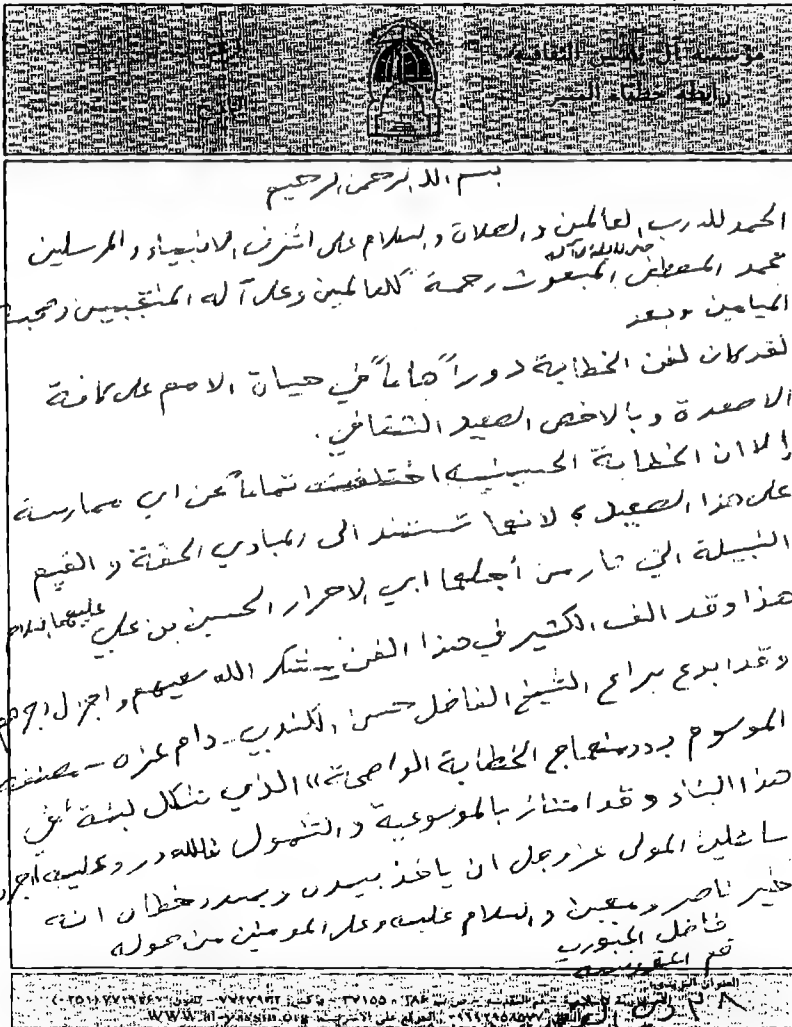 مؤسسة آل ياسين الثقافية
رابطة خطباء المنبر
التاريخ
بسم الله الرحمن الرحيم
الحمد لله رب العالمين و الصلاة و السلام على اشرف الانبياء و المرسلين
محمد المصطفى المبعوث رحمة للعالمين وعلى آله المنتجبين وصحبه
الميامين وبعد
لقد كان لفن الخطابة دوراً هاماً في حياة الامم على كافة
الاصعدة وبالاخص الصعيد الثقافي.
إلا ان الخطابة الحسينية اختلفت تماماً عن اي ممارسة
على هذا الصعيد، لانها تستند الى المبادئ الحقة و القيم
النبيلة التي ثار من أجلها ابي الاحرار الحسين بن علي عليهما السلام
هذا وقد الف الكثير في هذا الفن شكر الله سعيهم واجزل اجرهم
وقد ابدع يراع الشيخ الفاضل حسن - دام عزه - مصنفه
الموسوم بـ((منهاج الخطابة الواعية)) الذي شكل لبنة في
هذا البناء وقد امتاز بالموسوعية و الشمول فلله در وعليه اجره
سائلين المولى عز وجل ان ياخذ بيده ويسدد خطاه انه
خير ناصر ومعين و السلام عليه وعلى المؤمنين من حوله
فاضل
قم المقدسة
العنوان البريدي:
WWW.al-yassin.org